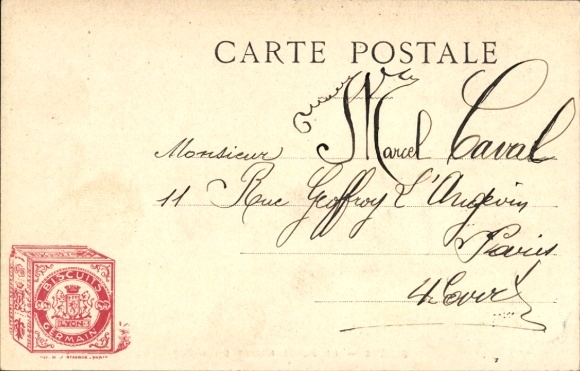 CARTE POSTALE
Monsieur Marcel Caval
11 Rue Geoffroy L'Angevin
Paris
BISCUITS
LYON
GERMAIN